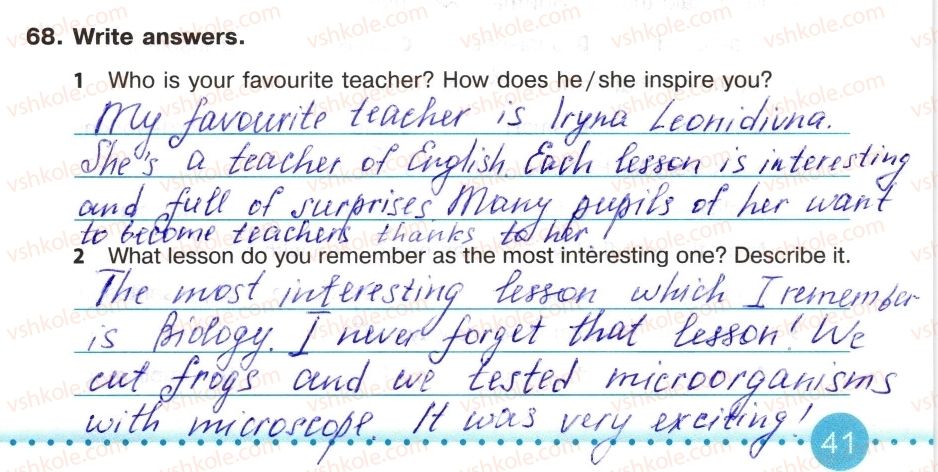 68. Write answers.
1 Who is your favourite teacher? How does he/she inspire you?
My favourite teacher is Iryna Leonidivna.
She's a teacher of English. Each lesson is interesting
and full of surprises. Many pupils of her want
to become teachers thanks to her.
2 What lesson do you remember as the most interesting one? Describe it.
The most interesting lesson which I remember
is Biology. I never forget that lesson! We
cut frogs and we tested microorganisms
with microscope. It was very exciting!
41
vshkole.com